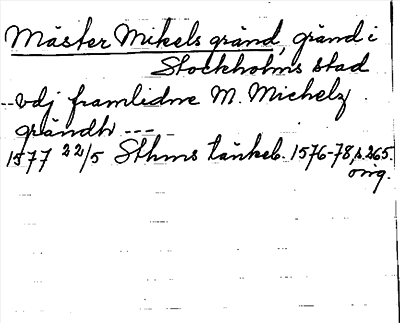 Mäster Mikels gränd, gränd i
Stockholms stad
--vdj framlidne M. Michelz
grändh ----
1577 22/5 Sthms tänkeb. 1576-78, s. 265.
orig.